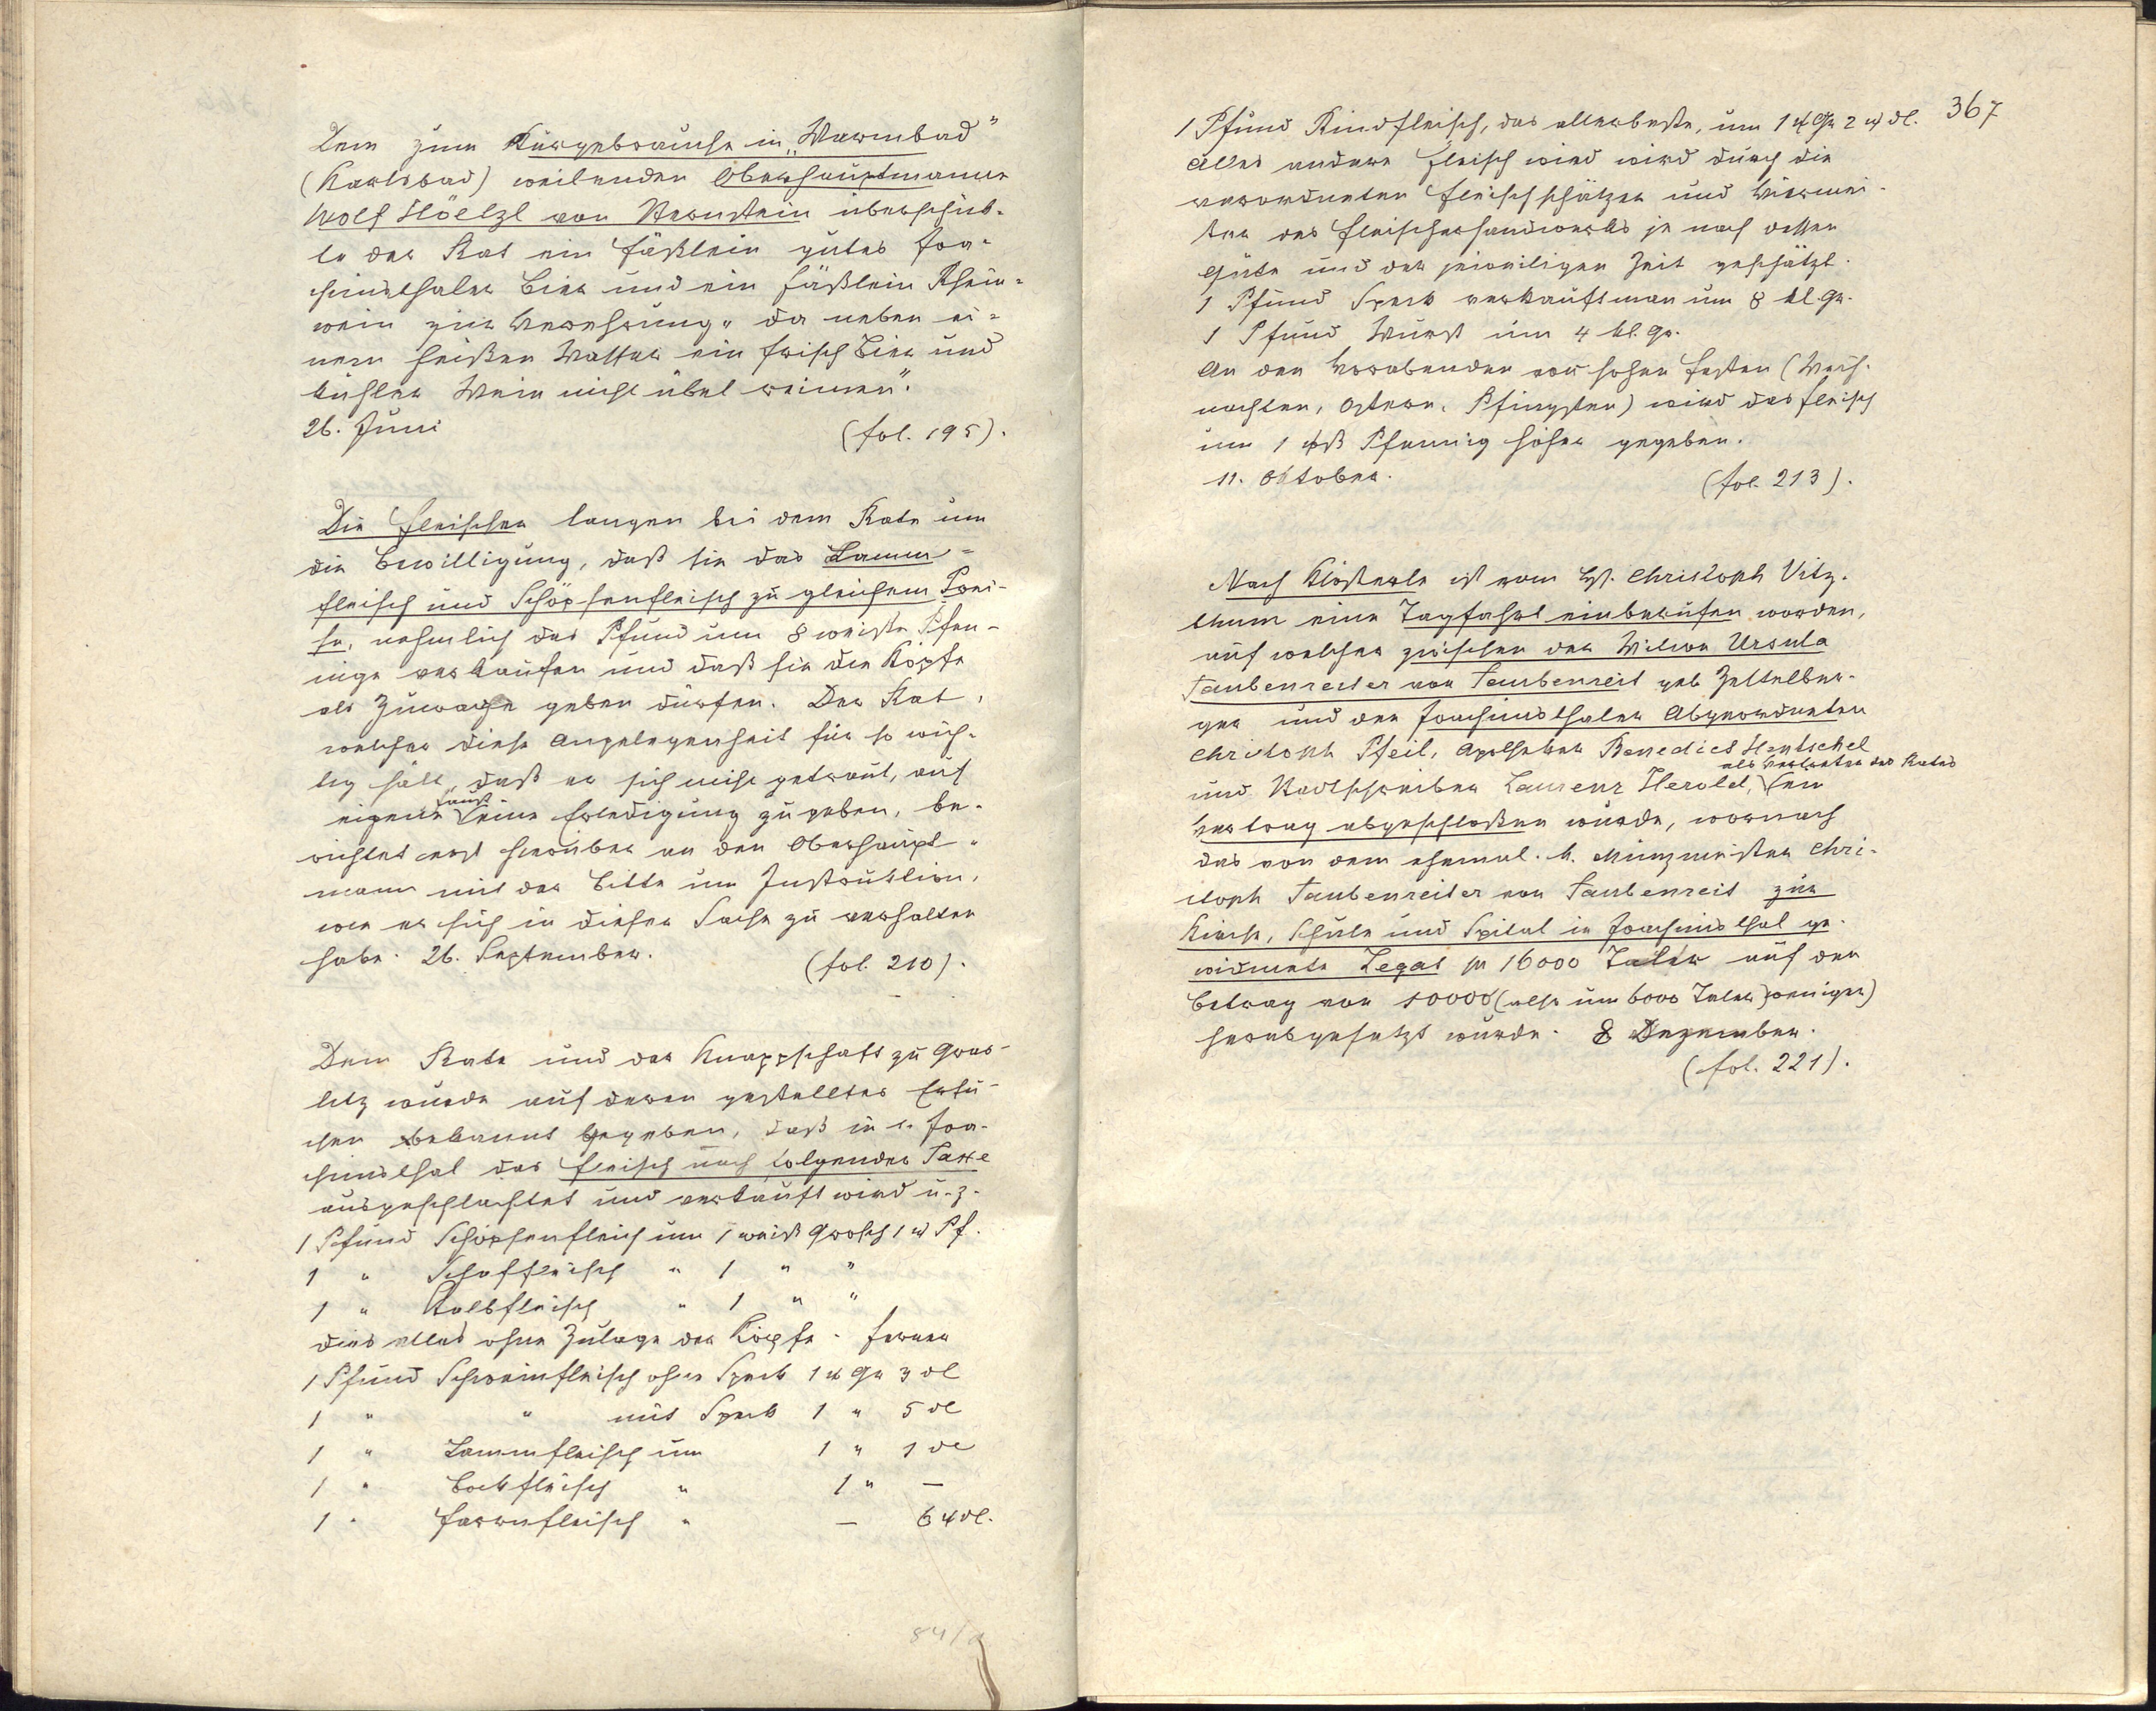 Dem zum Kurgebrauche in „Warmbad"
(Karlsbad) weilenden Oberhauptmanne
Wolf Höelzl von Sternstein überschick-
te der Rat ein Fäßlein gutes Joa-
chimsthaler Bier und ein Fäßlein Rhein-
wein zur Verehrung „da neben ei-
nem heißen Wasser ein frisch Bier und
kühler Wein nicht übel reimen".
26. Juni (fol. 195).
Die Fleischer langen bei dem Rate um
die Bewilligung, daß sie das Lamm-
fleisch und Schöpsenfleisch zu gleichem Prei-
se, nehmlich das Pfund um 8 weiße Pfen-
nige verkaufen und daß sie die Köpfe
als Zuwage geben dürfen. Der Rat,
welcher diese Angelegenheit für so wich-
tig hält, daß er sich nicht getraut, auf
eigene Faust eine Erledigung zu geben, be-
richtet erst hierüber an den Oberhaupt-
mann mit der Bitte um Instruktion,
wie er sich in dieser Sache zu verhalten
habe. 26. September. (fol. 210).
Dem Rate und der Knappschaft zu Gras-
litz wurde auf deren gestelltes Ersu-
chen bekannt gegeben, daß in S. Joa-
chimsthal das Fleisch nach folgender Taxe
ausgeschlachtet und verkauft wird u. z.
1 Pfund Schöpsenfleich um 1 weiß Grosch 1 w Pf.
1 " Schaffleisch " 1 " "
1 " Kalbfleisch " 1 " "
dies alles ohne Zulage der Köpfe. ferner
1 Pfund Schweinfleisch ohne Speck 1 w Gr 3 dl
1 " " mit Speck 1 " 5 dl
1 " Lammfleisch um 1 " 1 dl
1 " Bockfleisch " 1 " —
1 " Farrnfleisch " — 6 w dl.
367
1 Pfund Rindfleisch, das allerbeste, um 1 w Gr 2 w dl.
Alles andere Fleisch wird wird durch die
verordneten Fleischschätzer und Viermei-
ster des Fleischerhandwerks je nach dessen
Güte und der jeweiligen Zeit geschätzt.
1 Pfund Speck verkauft man um 8 kl. Gr.
1 Pfund Wurst um 4 kl. Gr.
An den Vorabenden von hohen Festen (Weih-
nachten, Ostern, Pfingsten) wird das Fleisch
um 1 Pfennig höher gegeben.
11. Oktober. (fol. 213).
Nach Klösterle ist vom H. Christoph Vitz-
thum eine Tagfahrt einberufen worden,
auf welcher zwischen der Witwe Ursula
Taubenreiter von Taubenreit geb Zettelber-
ger und den Joachimsthaler Abgeordneten
Christoph Pfeil, Apotheker Benedict Hentschel
und Stadtschreiber Laurenz Herold, als Vertreter des Rates ein
Vertrag abgeschloßen wurde, wornach
das von dem ehemal. k. Münzmeister Chri-
stoph Taubenreiter von Taubenreit zur
Kirche, Schule und Spital in Joachimsthal ge-
widmete Legat pr 16000 Taler auf den
Betrag von 10000 (also um 6000 Taler weniger)
herabgesetzt wurde. 8 Dezember.
(fol. 221).